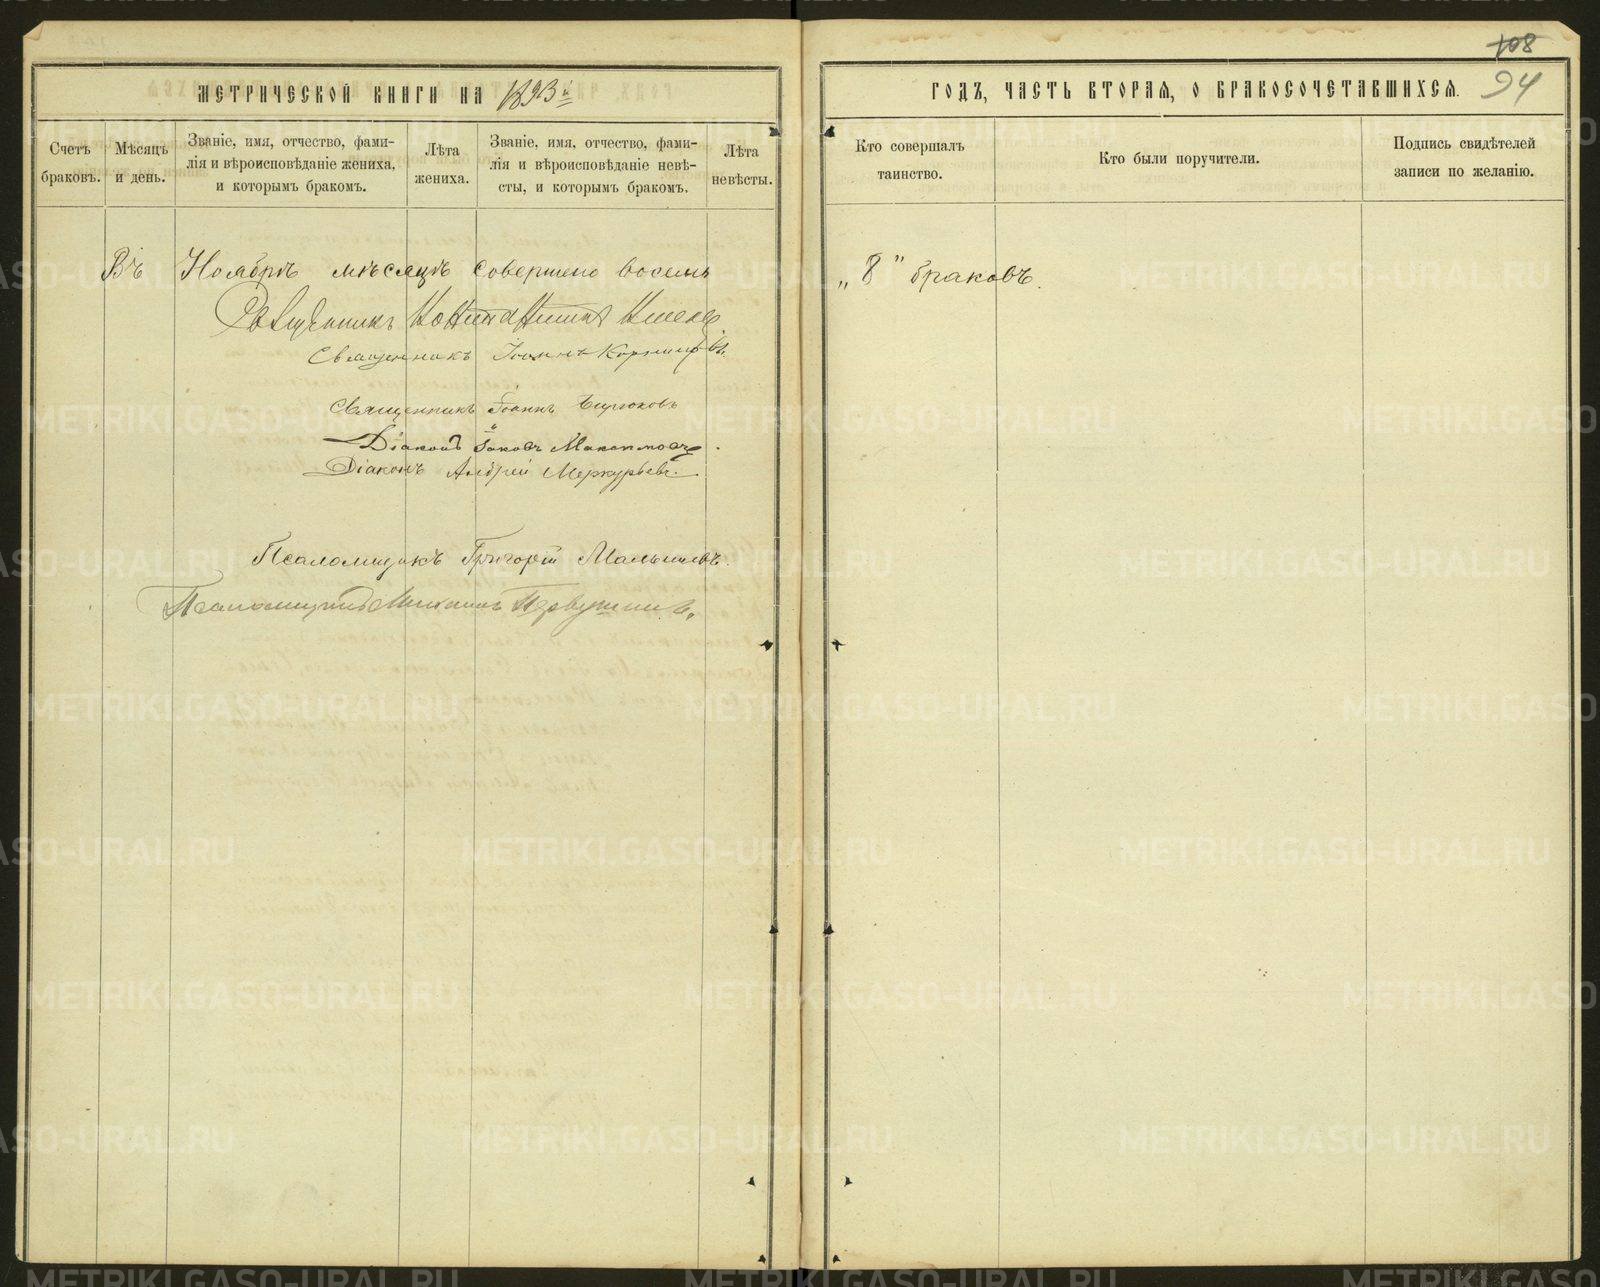 108
94
МЕТРИЧЕСКОЙ КНИГИ НА 1893й
ГОДЪ, ЧАСТЬ ВТОРАЯ, О БРАКОСОЧЕТАВШИХСЯ.
Счетъ браковъ.
Мѣсяцъ и день.
Званіе, имя, отчество, фами-
лія и вѣроисповѣданіе жениха,
и которымъ бракомъ.
Лѣта жениха.
Званіе, имя, отчество, фами-
лія и вѣроисповѣданіе невѣ-
сты, и которымъ бракомъ.
Лѣта невѣсты.
Кто совершалъ таинство.
Кто были поручители.
Подпись свидѣтелей
записи по желанію.
Въ Ноябрѣ мѣсяцѣ совершено восемь „8" браковъ.
Священникъ Константинъ
Священникъ Іоаннъ Корнилов
Священникъ Іоаннъ Бирюковъ
Діаконъ Іаковъ Максимовъ
Діаконъ Андрей Меркурьевъ.
Псаломщикъ Григорій Малышевъ.
Псаломщикъ Михаилъ Первушинъ.
METRIKI.GASO-URAL.RU